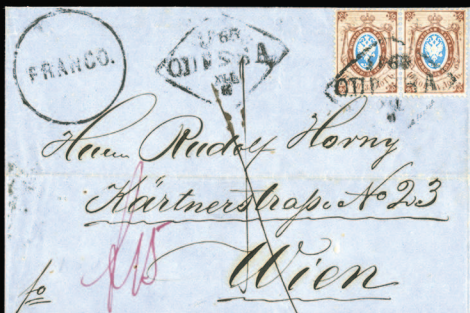 FRANCO.
ОДЕССА
ОДЕССА
Herrn Rudolf Horny
Kärtnerstraße No 23
Wien
fo